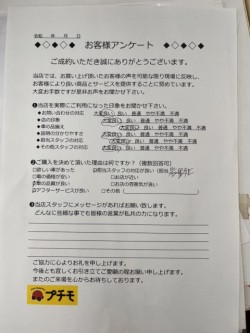 令和 年 月 日
◆◇◆◇◆ お客様アンケート ◆◇◆◇◆
ご成約いただき誠にありがとうございます。
当店では、お買い上げ頂いたお客様の声を可能な限り現場に反映し、
お客様により良い商品とサービスを提供することに努めています。
大変お手数ですが是非お声をお聞かせ下さい。
❶当店を実際にご利用になった印象をお聞かせ下さい。
◆お問い合わせの対応 大変良い 良い 普通 やや不満 不満
◆店の印象 大変良い 良い 普通 やや不満 不満
◆車の品揃え 大変良い 良い 普通 やや不満 不満
◆車両の説明 大変良い 良い 普通 やや不満 不満
◆担当スタッフの対応 大変良い 良い 普通 やや不満 不満
◆その他スタッフの対応 大変良い 良い 普通 やや不満 不満
❷ご購入を決めて頂いた理由は何ですか?(複数回答可)
□欲しい車があった
□車の価格が安い □お店が近い
□車の品質が良い □お店の雰囲気が良い
□アフターサービスが良い □その他(
❸当店スタッフにメッセージがあればお願い致します。
どんなに些細な事でも皆様の言葉が私共の力になります。
ご協力に心よりお礼を申し上げます。
今後とも宜しくお引き立てご愛顧の程お願い申し上げます。
またのご来場を心からお待ちしております。
プチモ